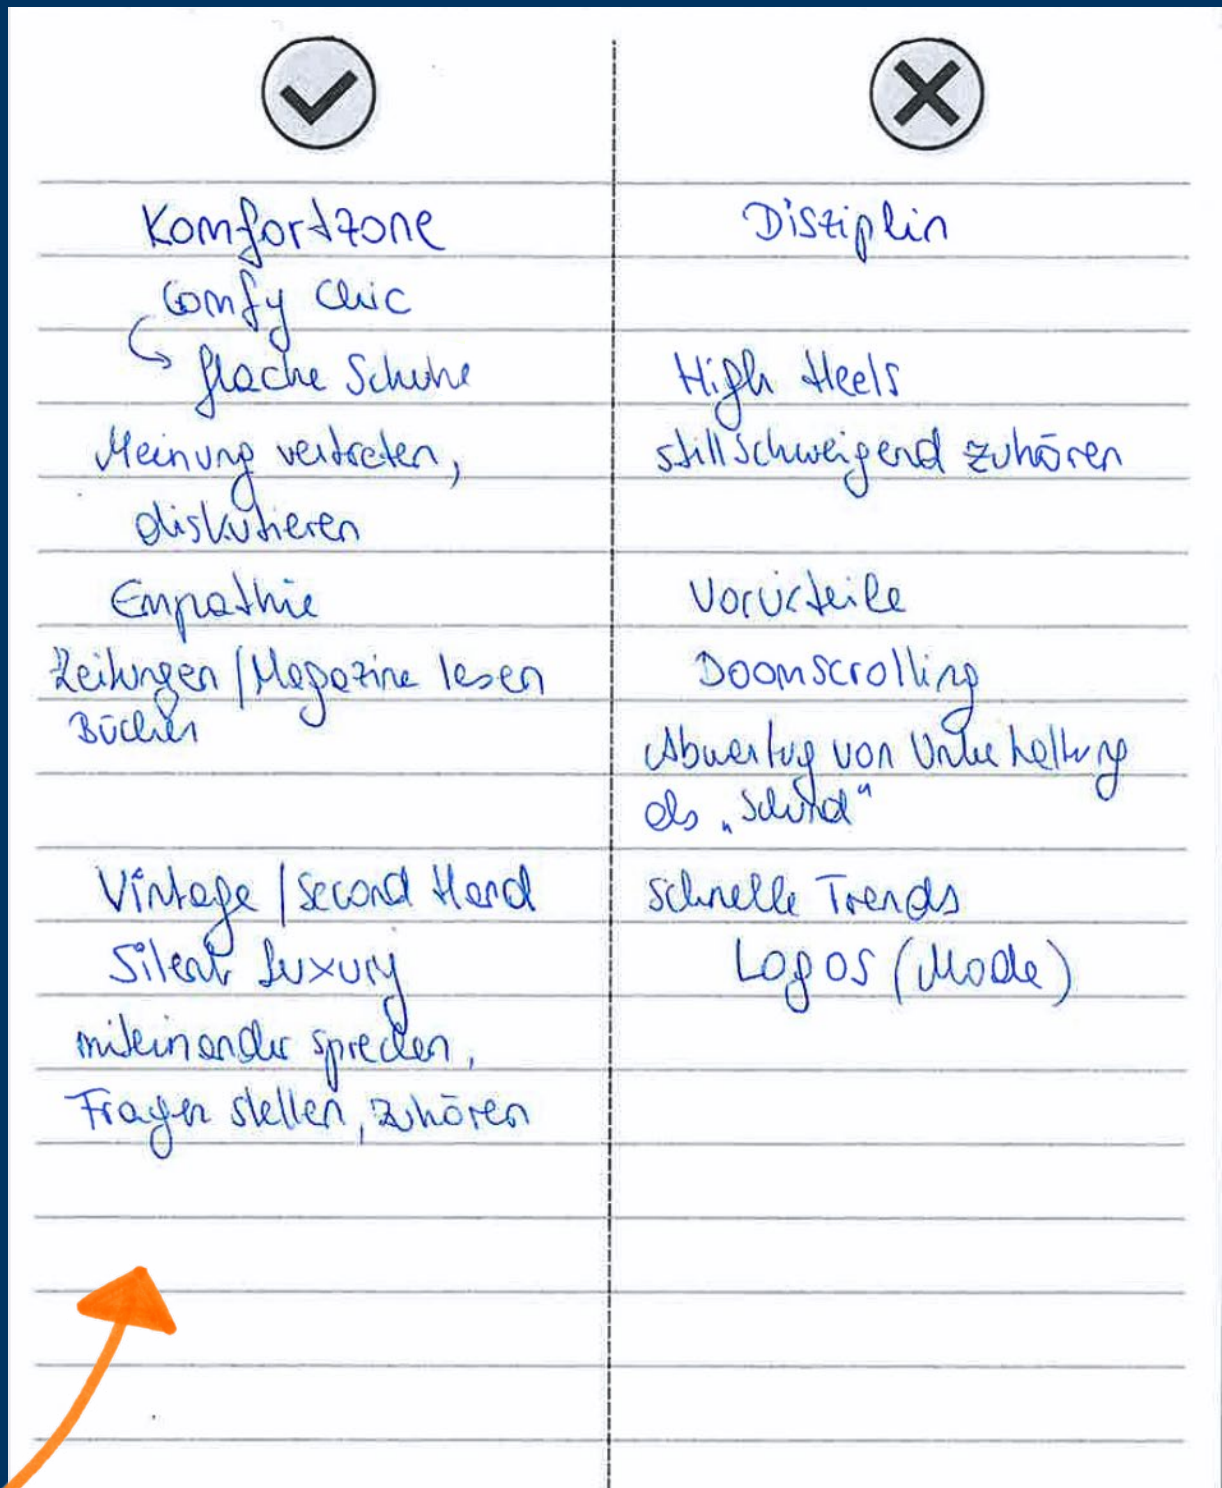 Komfortzone
Comfy Chic
flache Schuhe
Meinung vertreten,
diskutieren
Empathie
Zeitungen / Magazine lesen
Bücher
Vintage / Second Hand
Silent Luxury
miteinander sprechen,
Fragen stellen, zuhören
Disziplin
High Heels
stillschweigend zuhören
Vorurteile
Doomscrolling
Abwertung von Unterhaltung
als „Schund“
schnelle Trends
Logos (Mode)